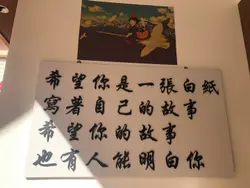 希望你是一張白紙
寫著自己的故事
希望你的故事
也有人能明白你